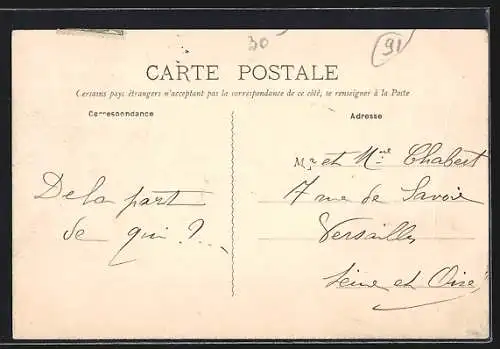 30
91
CARTE POSTALE
Certains pays étrangers n'acceptant pas la correspondance de ce côté, se renseigner à la Poste
Correspondance
Adresse
De la part
de qui ?...
Mr et Mme Chabert
17 rue de Savoie
Versailles
Seine et Oise